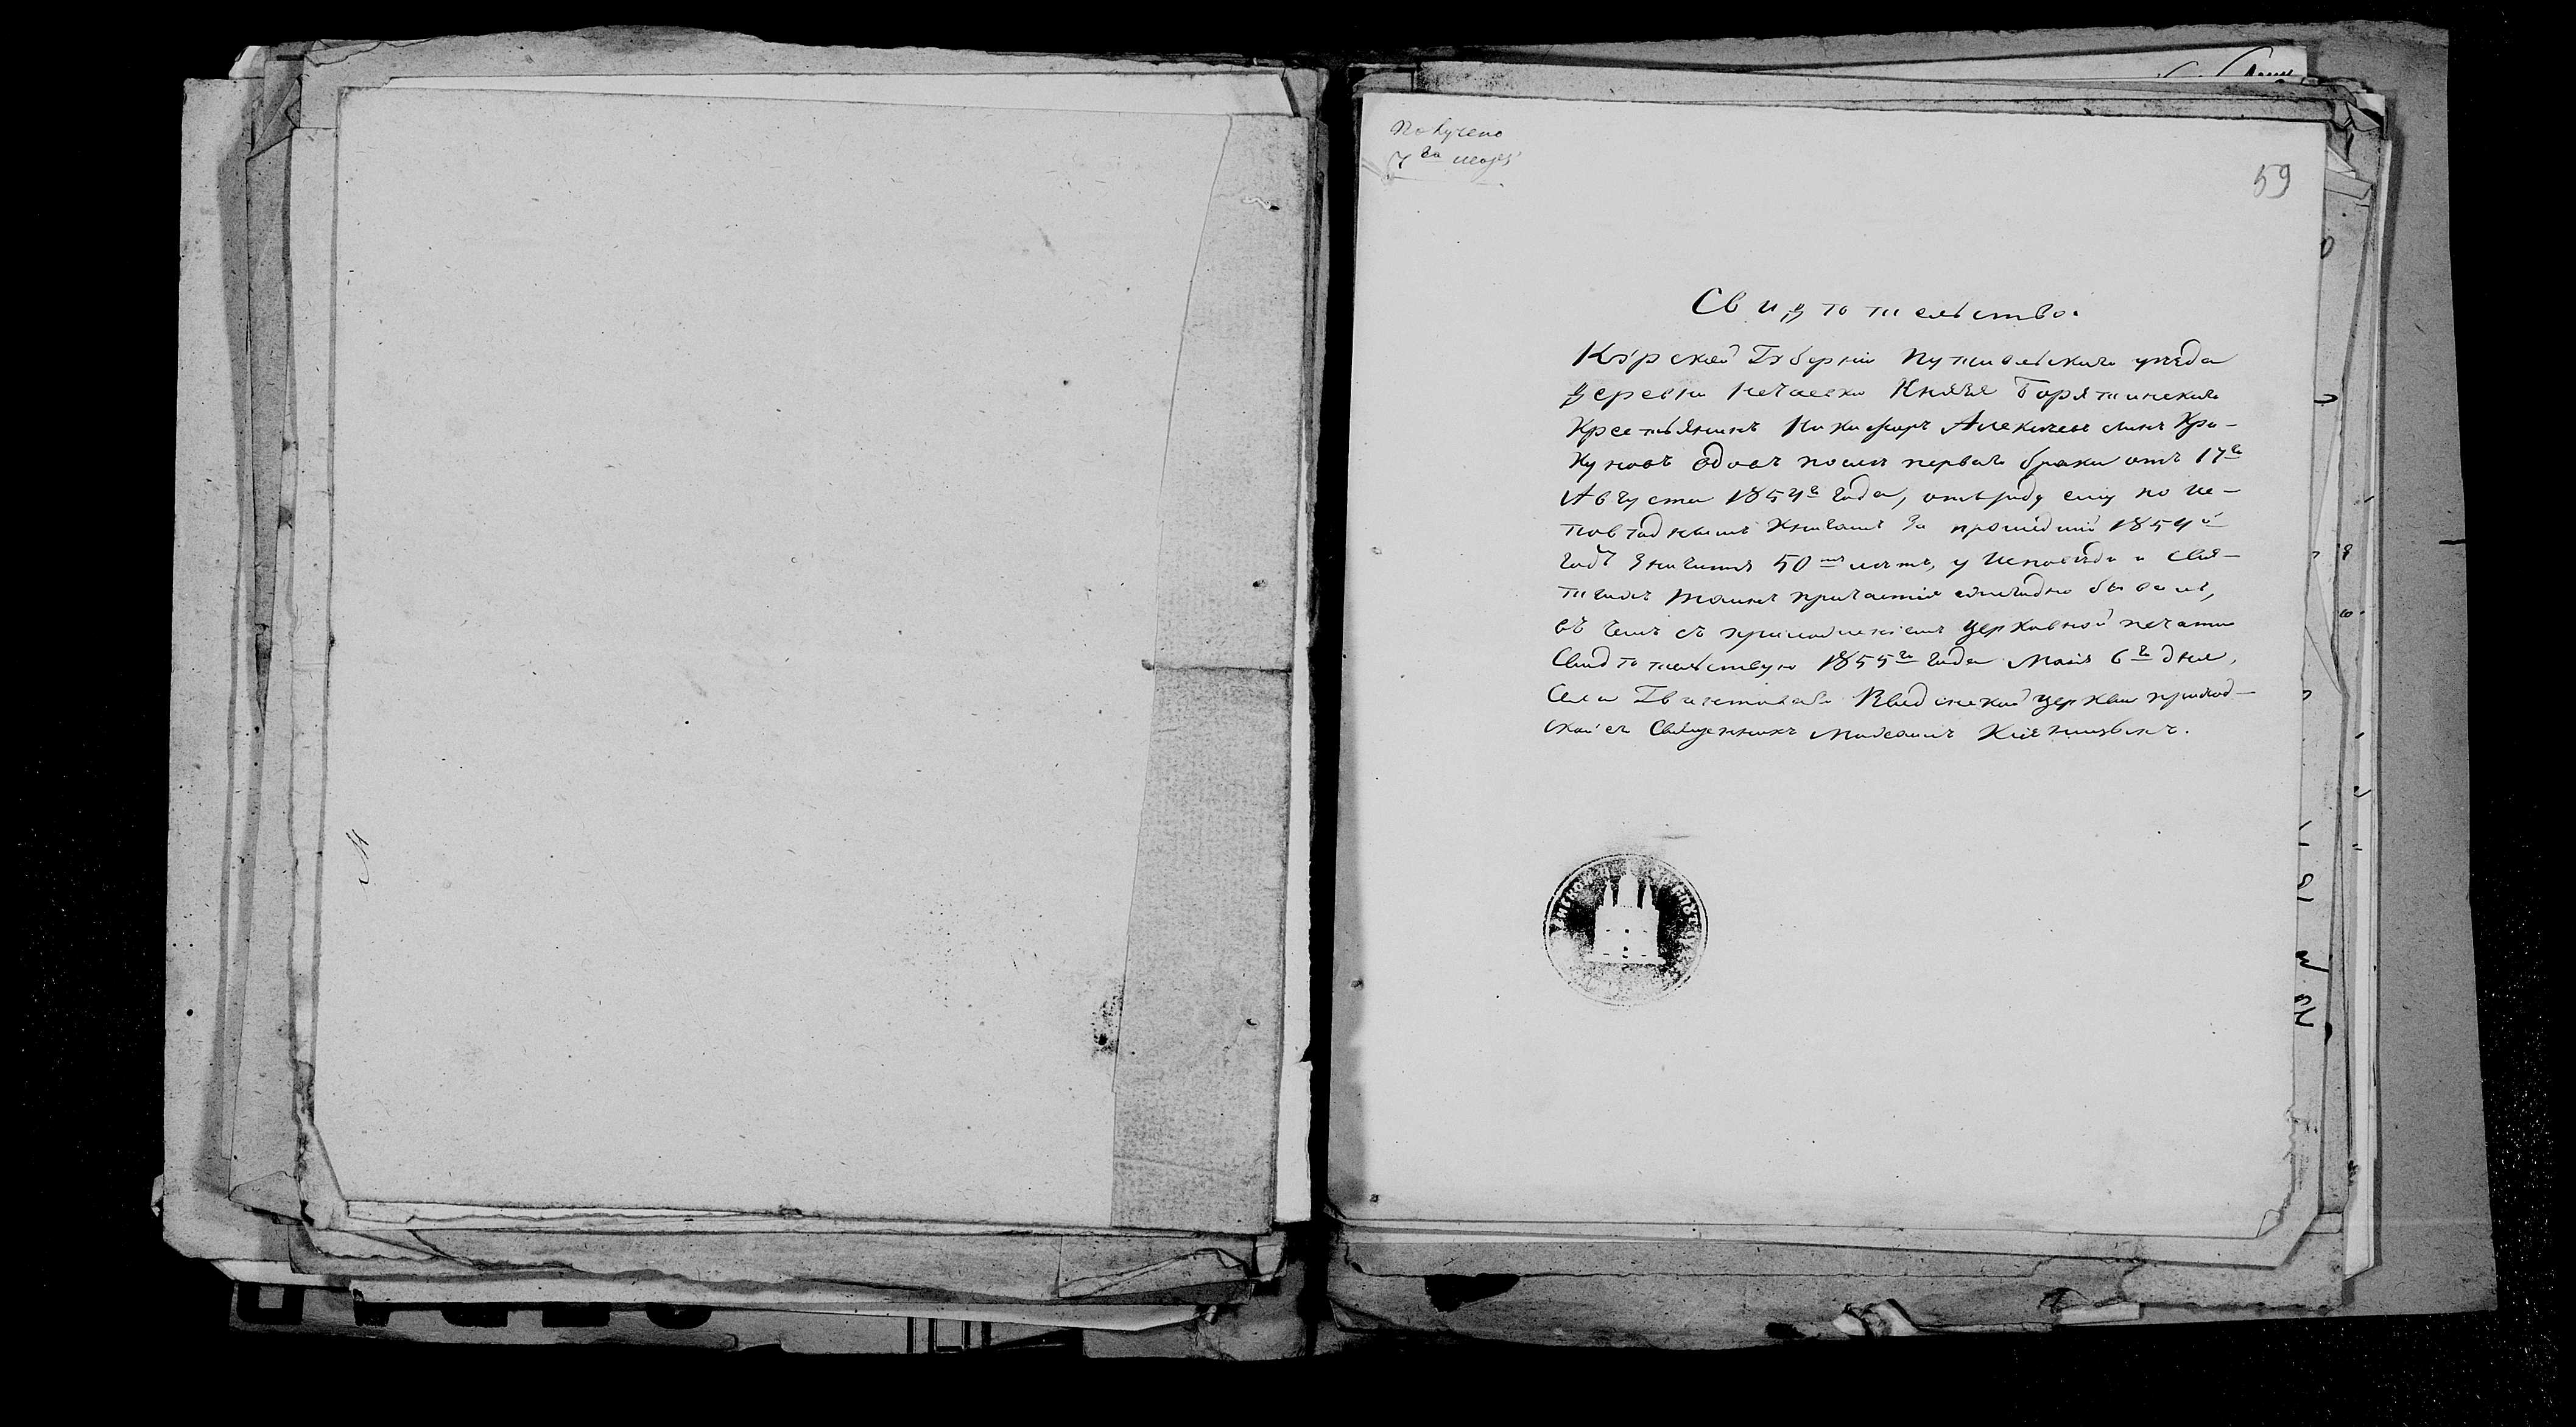 Получено
7го маія
59
Свидѣтельство.
Курской Губерніи Путивльскаго уѣзда
деревни Нечаевки Князя Барятинскаго
Крестьянинъ Никифоръ Алексѣевъ сынъ Кро-
куновъ вдовъ послѣ перваго брака отъ 17го
Августа 1854го года, отъ роду ему по ис-
повѣднымъ книгамъ за прошедшій 1854й
годъ значится 50тъ лѣтъ, у исповѣди и свя-
тыхъ таинъ причастія ежегодно бывалъ,
въ чемъ съ приложеніемъ церковной печати
свидѣтельствую 1855го года Маія 6го дня,
Села Введенской церкви приход-
скій священникъ